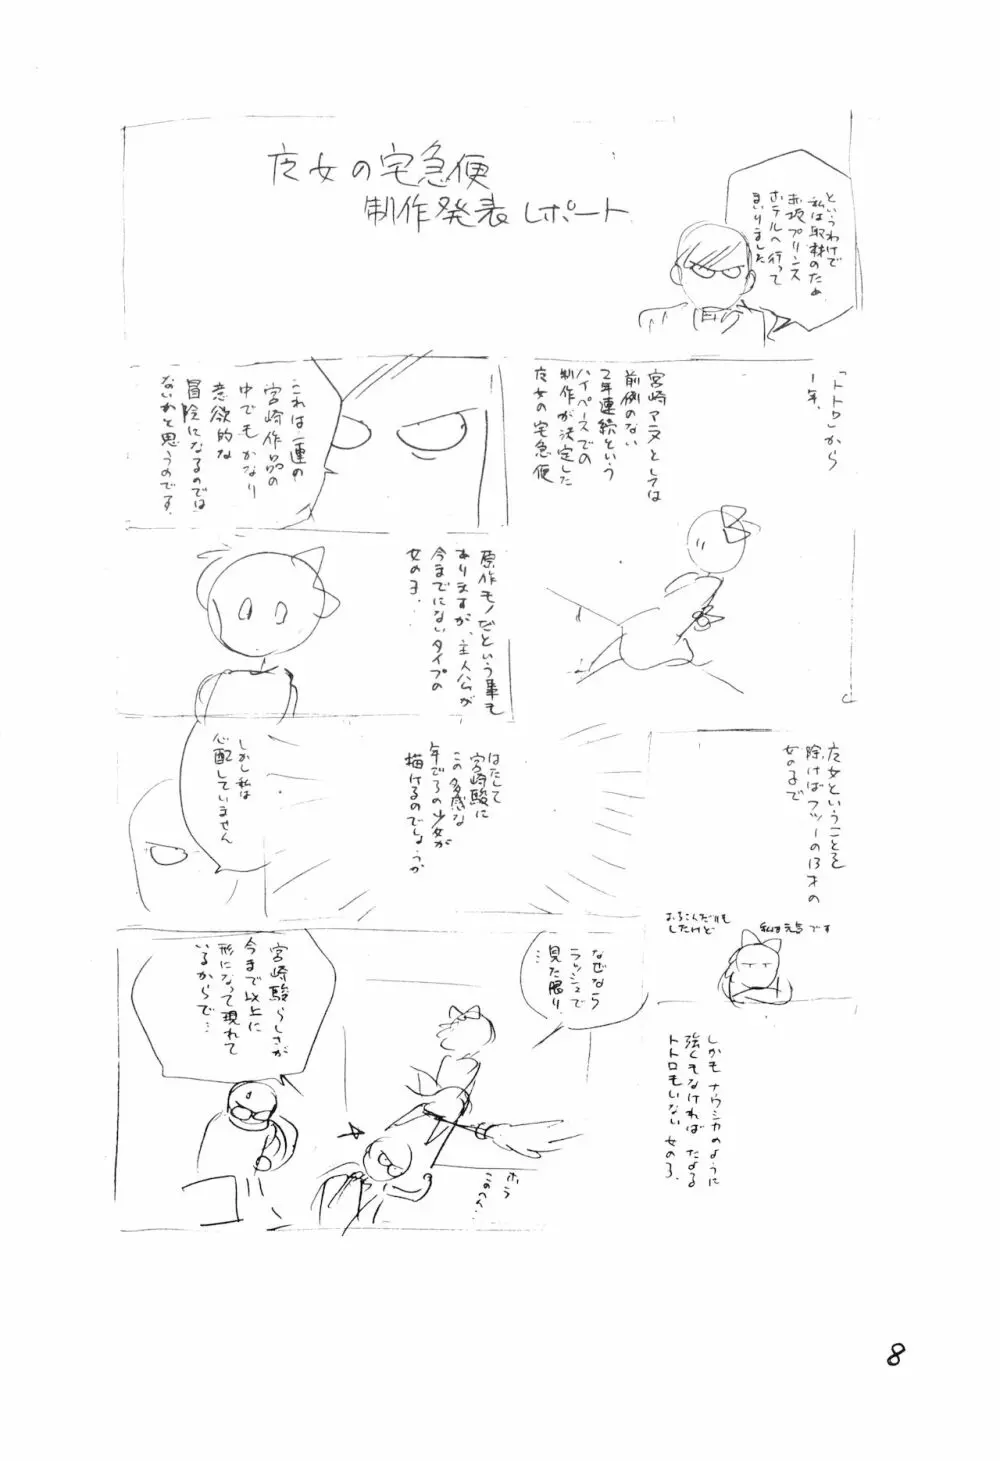 魔女の宅急便
制作発表レポート
というわけで
私は取材のため
赤坂プリンス
ホテルへ行って
まいりました
「トトロ」から
1年、
宮崎アニメとしては
前例のない
2年連続という
ハイペースでの
制作が決定した
魔女の宅急便
これは一連の
宮崎作品の
中でもかなり
意欲的な
冒険になるのでは
ないかと思うのです.
原作モノだという事も
ありますが、主人公が
今までにないタイプの
女の子..
魔女ということを
除けばフツーの13才の
女の子で
おちこんだりも
したけど
私は元気です
しかもナウシカのように
強くもなければ たよる
トトロもいない 女の子.
はたして
宮崎駿に
この多感な
年ごろの少女が
描けるのでしょうか
しかし私は
心配していません
なぜなら
ラッシュで
見た限り
…
ホラ
このへん…
宮崎駿らしさが
今まで以上に
形になって現れて
いるからで…
8